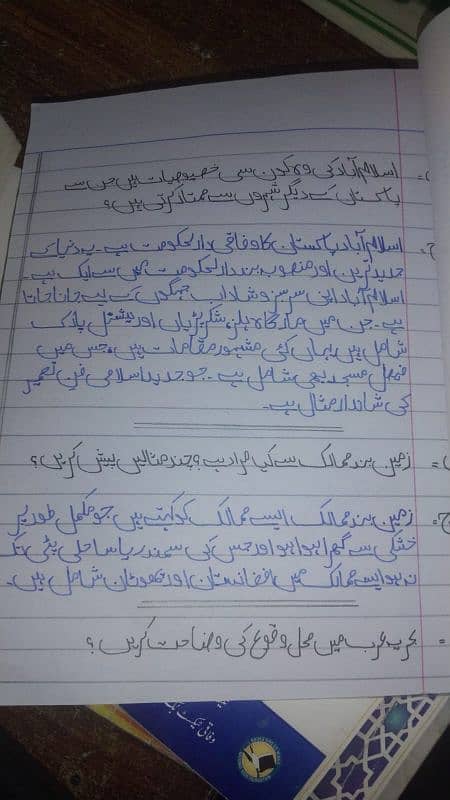 اسلام آباد کی وہ کون سی خصوصیات ہیں جن سے
پاکستان کے دیگر شہروں سے ممتاز کرتی ہیں؟
ج۔ اسلام آباد پاکستان کا وفاقی دارالحکومت ہے۔ یہ دنیا کے
جدید ترین اور منصوبہ بند دارالحکومت میں سے ایک ہے۔
اسلام آباد اپنی سرسبز و شاداب جہگوں کے لیے جانا جاتا
ہے۔ جن میں مارگلہ ہلز، شکرپڑیاں اور نیشنل پارک
شامل ہیں یہاں کئی مشہور مقامات ہیں، جس میں
فیصل مسجد بھی شامل ہے۔ جو جدید اسلامی فن تعمیر
کی شاندار مثال ہے۔
زمین بند ممالک سے کیا مراد ہے؟ چند مثالیں پیش کریں؟
ج۔ زمین بند ممالک ایسے ممالک کو کہتے ہیں جو مکمل طور پر
خشکی سے گھرا ہوا ہو اور جس کی سمندر یا ساحلی پٹی تک
نہ ہو ایسے ممالک میں افغانستان اور بھوٹان شامل ہیں۔
بحیرہ عرب میں محل وقوع کی وضاحت کریں؟
وفاقی ٹیکسٹ بک